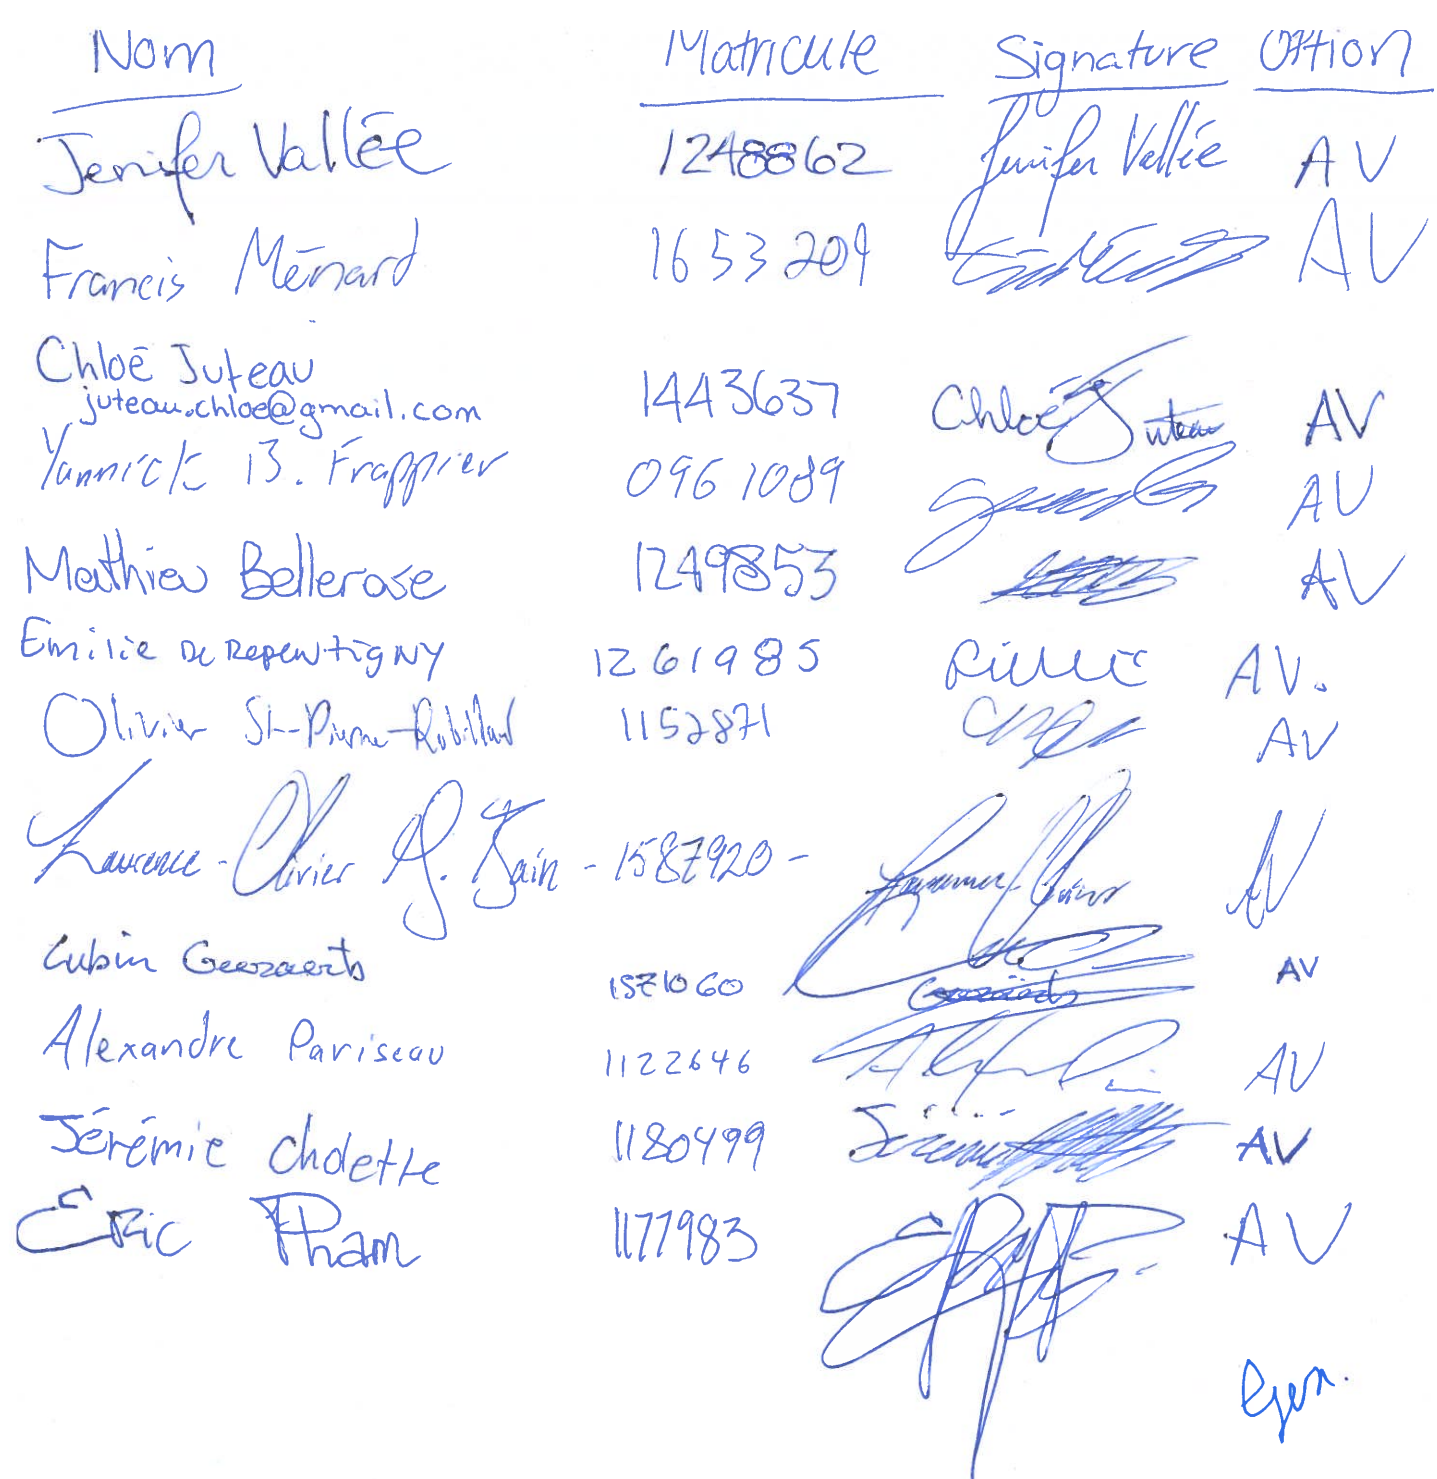 Nom Matricule Signature Option
Jenifer Vallée 1248862 Jenifer Vallée AV
Francis Ménard 1653209 AV
Chloé Juteau
juteau.chloe@gmail.com 1443637 Chloé Juteau AV
Yannick B. Frappier 0961089 AV
Mathieu Bellerose 1249853 AV
Emilie De Repentigny 1261985 AV.
Olivier St-Pierre-Robillard 1152871 AV
Laurence-Olivier G. Jain - 1587920 - AV
Lubin Geeraerts 1571060 Geeraerts AV
Alexandre Pariseau 1122646 AV
Jérémie Cholette 1180499 Jérémie AV
Eric Pham 1177983 AV